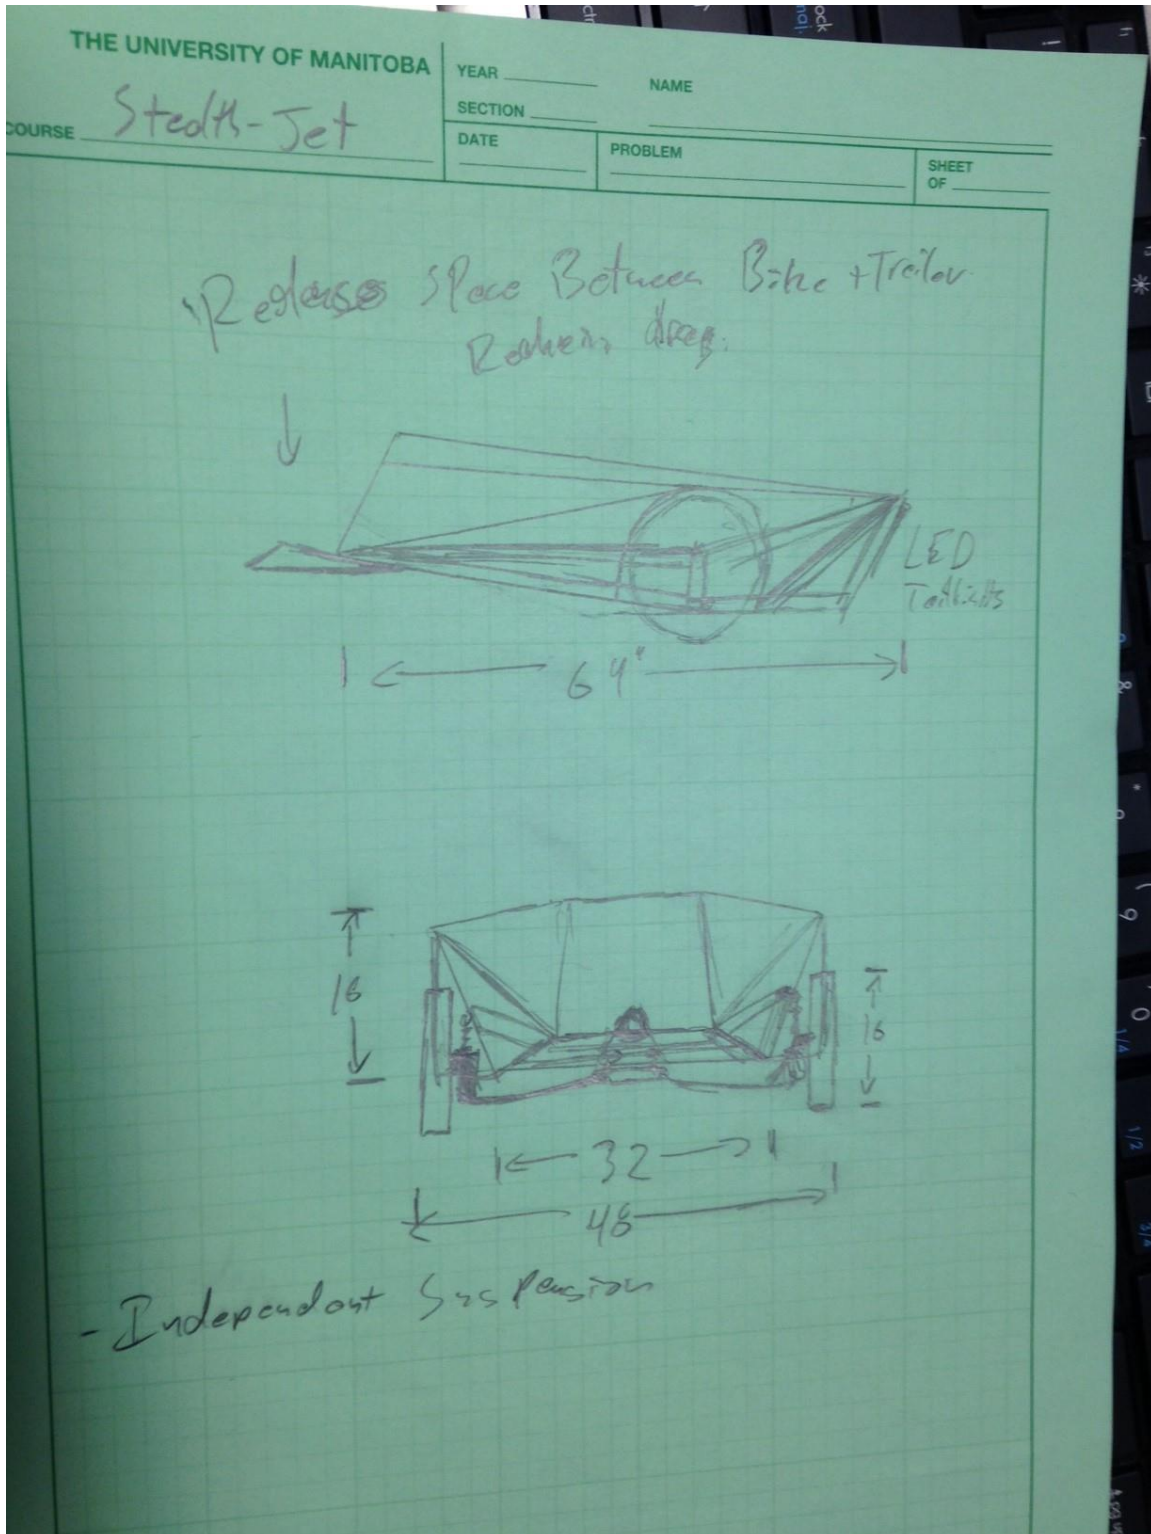 THE UNIVERSITY OF MANITOBA
COURSE Stedlth-Jet
YEAR
SECTION
NAME
DATE
PROBLEM
SHEET
OF
Space Between Bike + Trailer
drag.
LED
Taillights
64"
16
16
32
48
- Independant Suspension